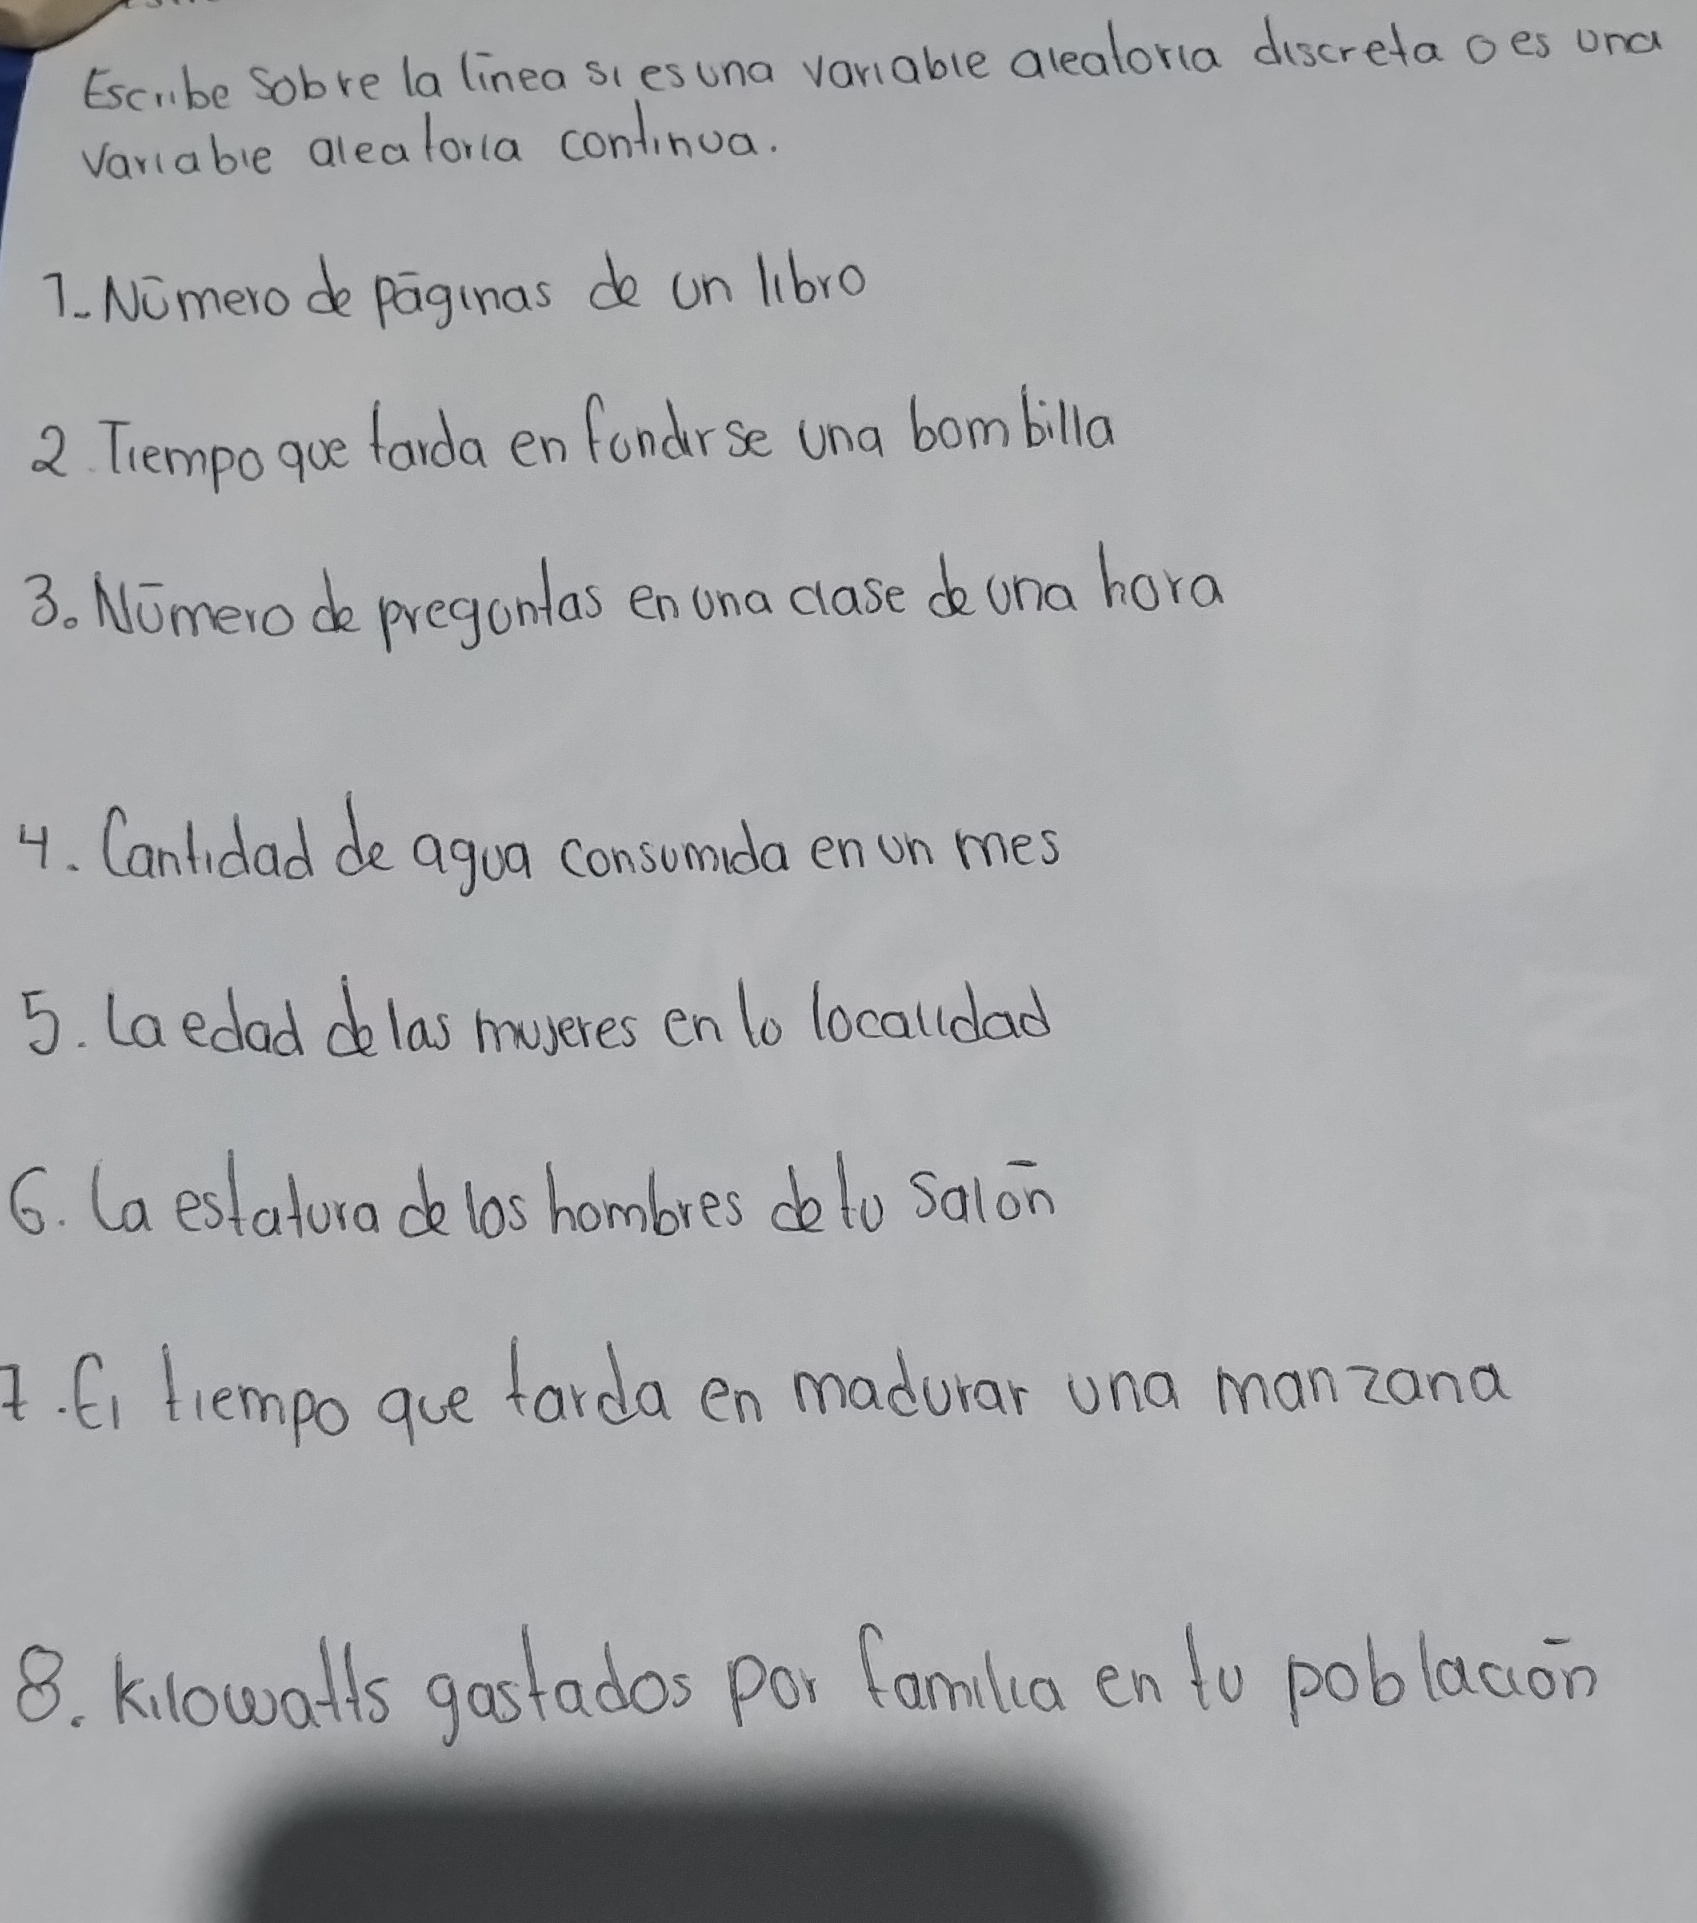 Escribe sobre la línea si es una variable aleatoria discreta o es una
variable aleatoria continua.
1. Número de páginas de un libro
2. Tiempo que tarda en fundirse una bombilla
3. Número de preguntas en una clase de una hora
4. Cantidad de agua consumida en un mes
5. La edad de las mujeres en tu localidad
6. La estatura de los hombres de tu salón
7. El tiempo que tarda en madurar una manzana
8. Kilowatts gastados por familia en tu población